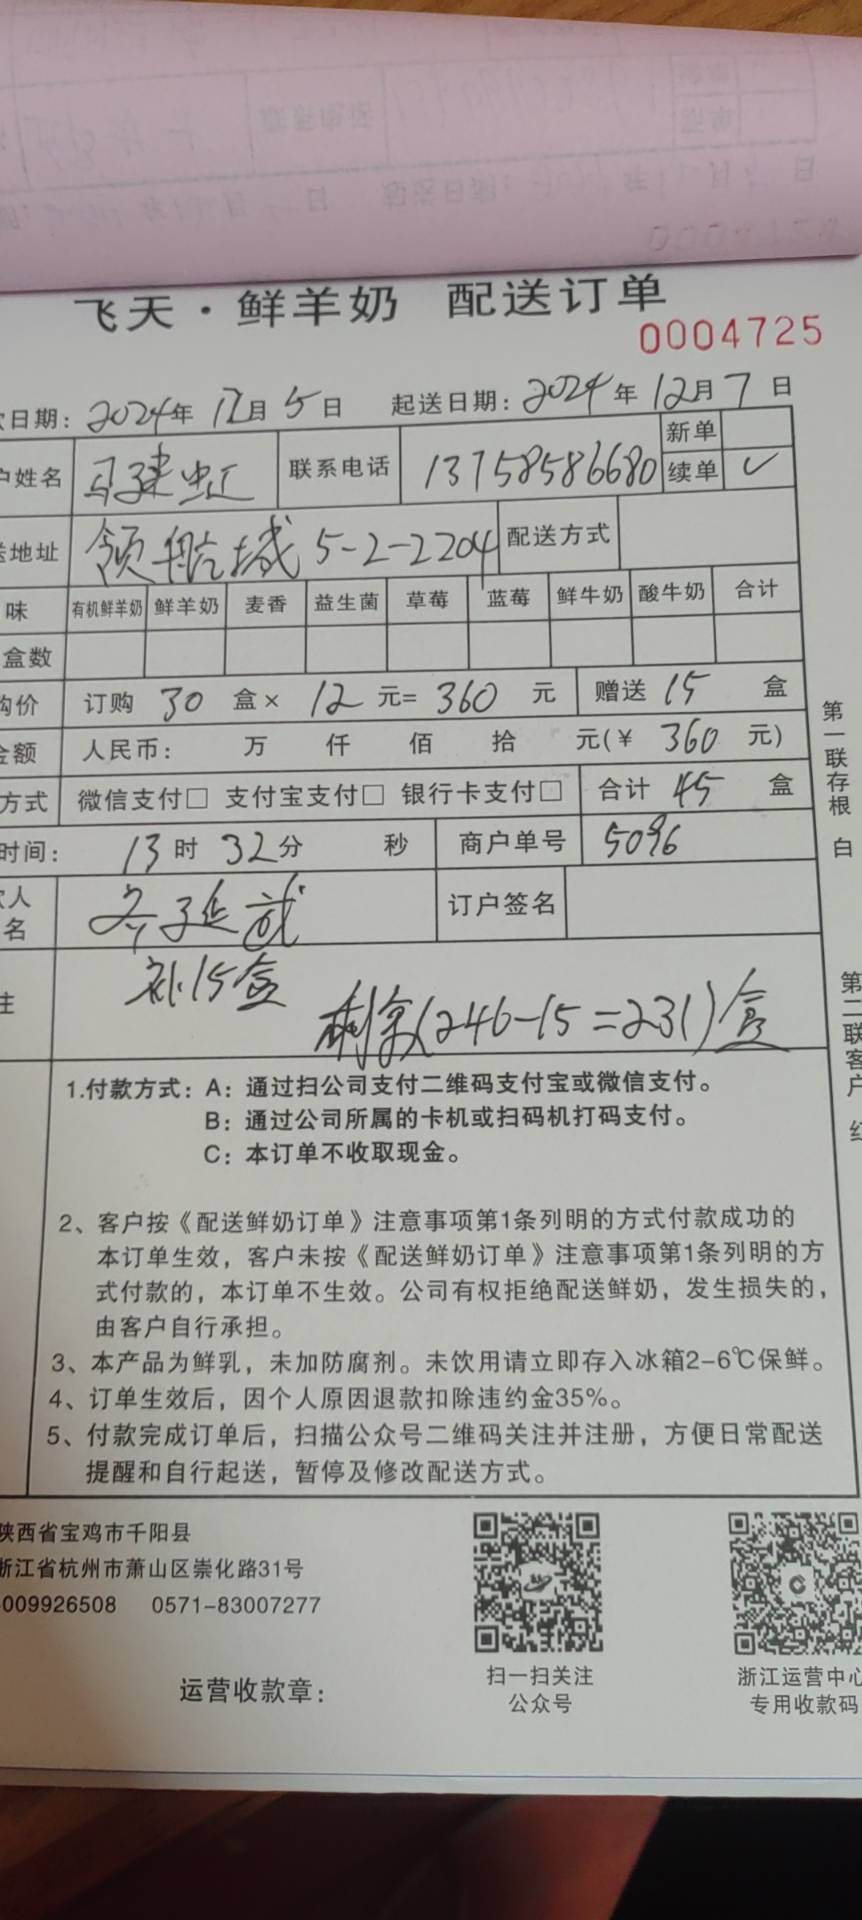 飞天·鲜羊奶 配送订单
0004725
欠日期: 2024年 12月 5日 起送日期: 2024年 12月 7日
户姓名 马建虹 联系电话 13758586680 新单
续单 ✓
送地址 领航城 5-2-2204 配送方式
味 有机鲜羊奶 鲜羊奶 麦香 益生菌 草莓 蓝莓 鲜牛奶 酸牛奶 合计
盒数
购价 订购 30 盒× 12 元= 360 元 赠送 15 盒
金额 人民币: 万 仟 佰 拾 元(¥ 360 元)
方式 微信支付□ 支付宝支付□ 银行卡支付□ 合计 45 盒
时间: 13时 32分 秒 商户单号 5096
人名 订户签名
注 补15盒
剩余(246-15=231)盒
1.付款方式: A: 通过扫公司支付二维码支付宝或微信支付。
B: 通过公司所属的卡机或扫码机打码支付。
C: 本订单不收取现金。
2、客户按《配送鲜奶订单》注意事项第1条列明的方式付款成功的
本订单生效，客户未按《配送鲜奶订单》注意事项第1条列明的方
式付款的，本订单不生效。公司有权拒绝配送鲜奶，发生损失的，
由客户自行承担。
3、本产品为鲜乳，未加防腐剂。未饮用请立即存入冰箱2-6℃保鲜。
4、订单生效后，因个人原因退款扣除违约金35%。
5、付款完成订单后，扫描公众号二维码关注并注册，方便日常配送
提醒和自行起送，暂停及修改配送方式。
第一联存根 白
第二联客户 红
陕西省宝鸡市千阳县
浙江省杭州市萧山区崇化路31号
009926508 0571-83007277
运营收款章:
扫一扫关注
公众号
浙江运营中心
专用收款码